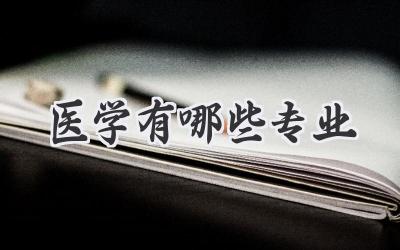 医学有哪些专业